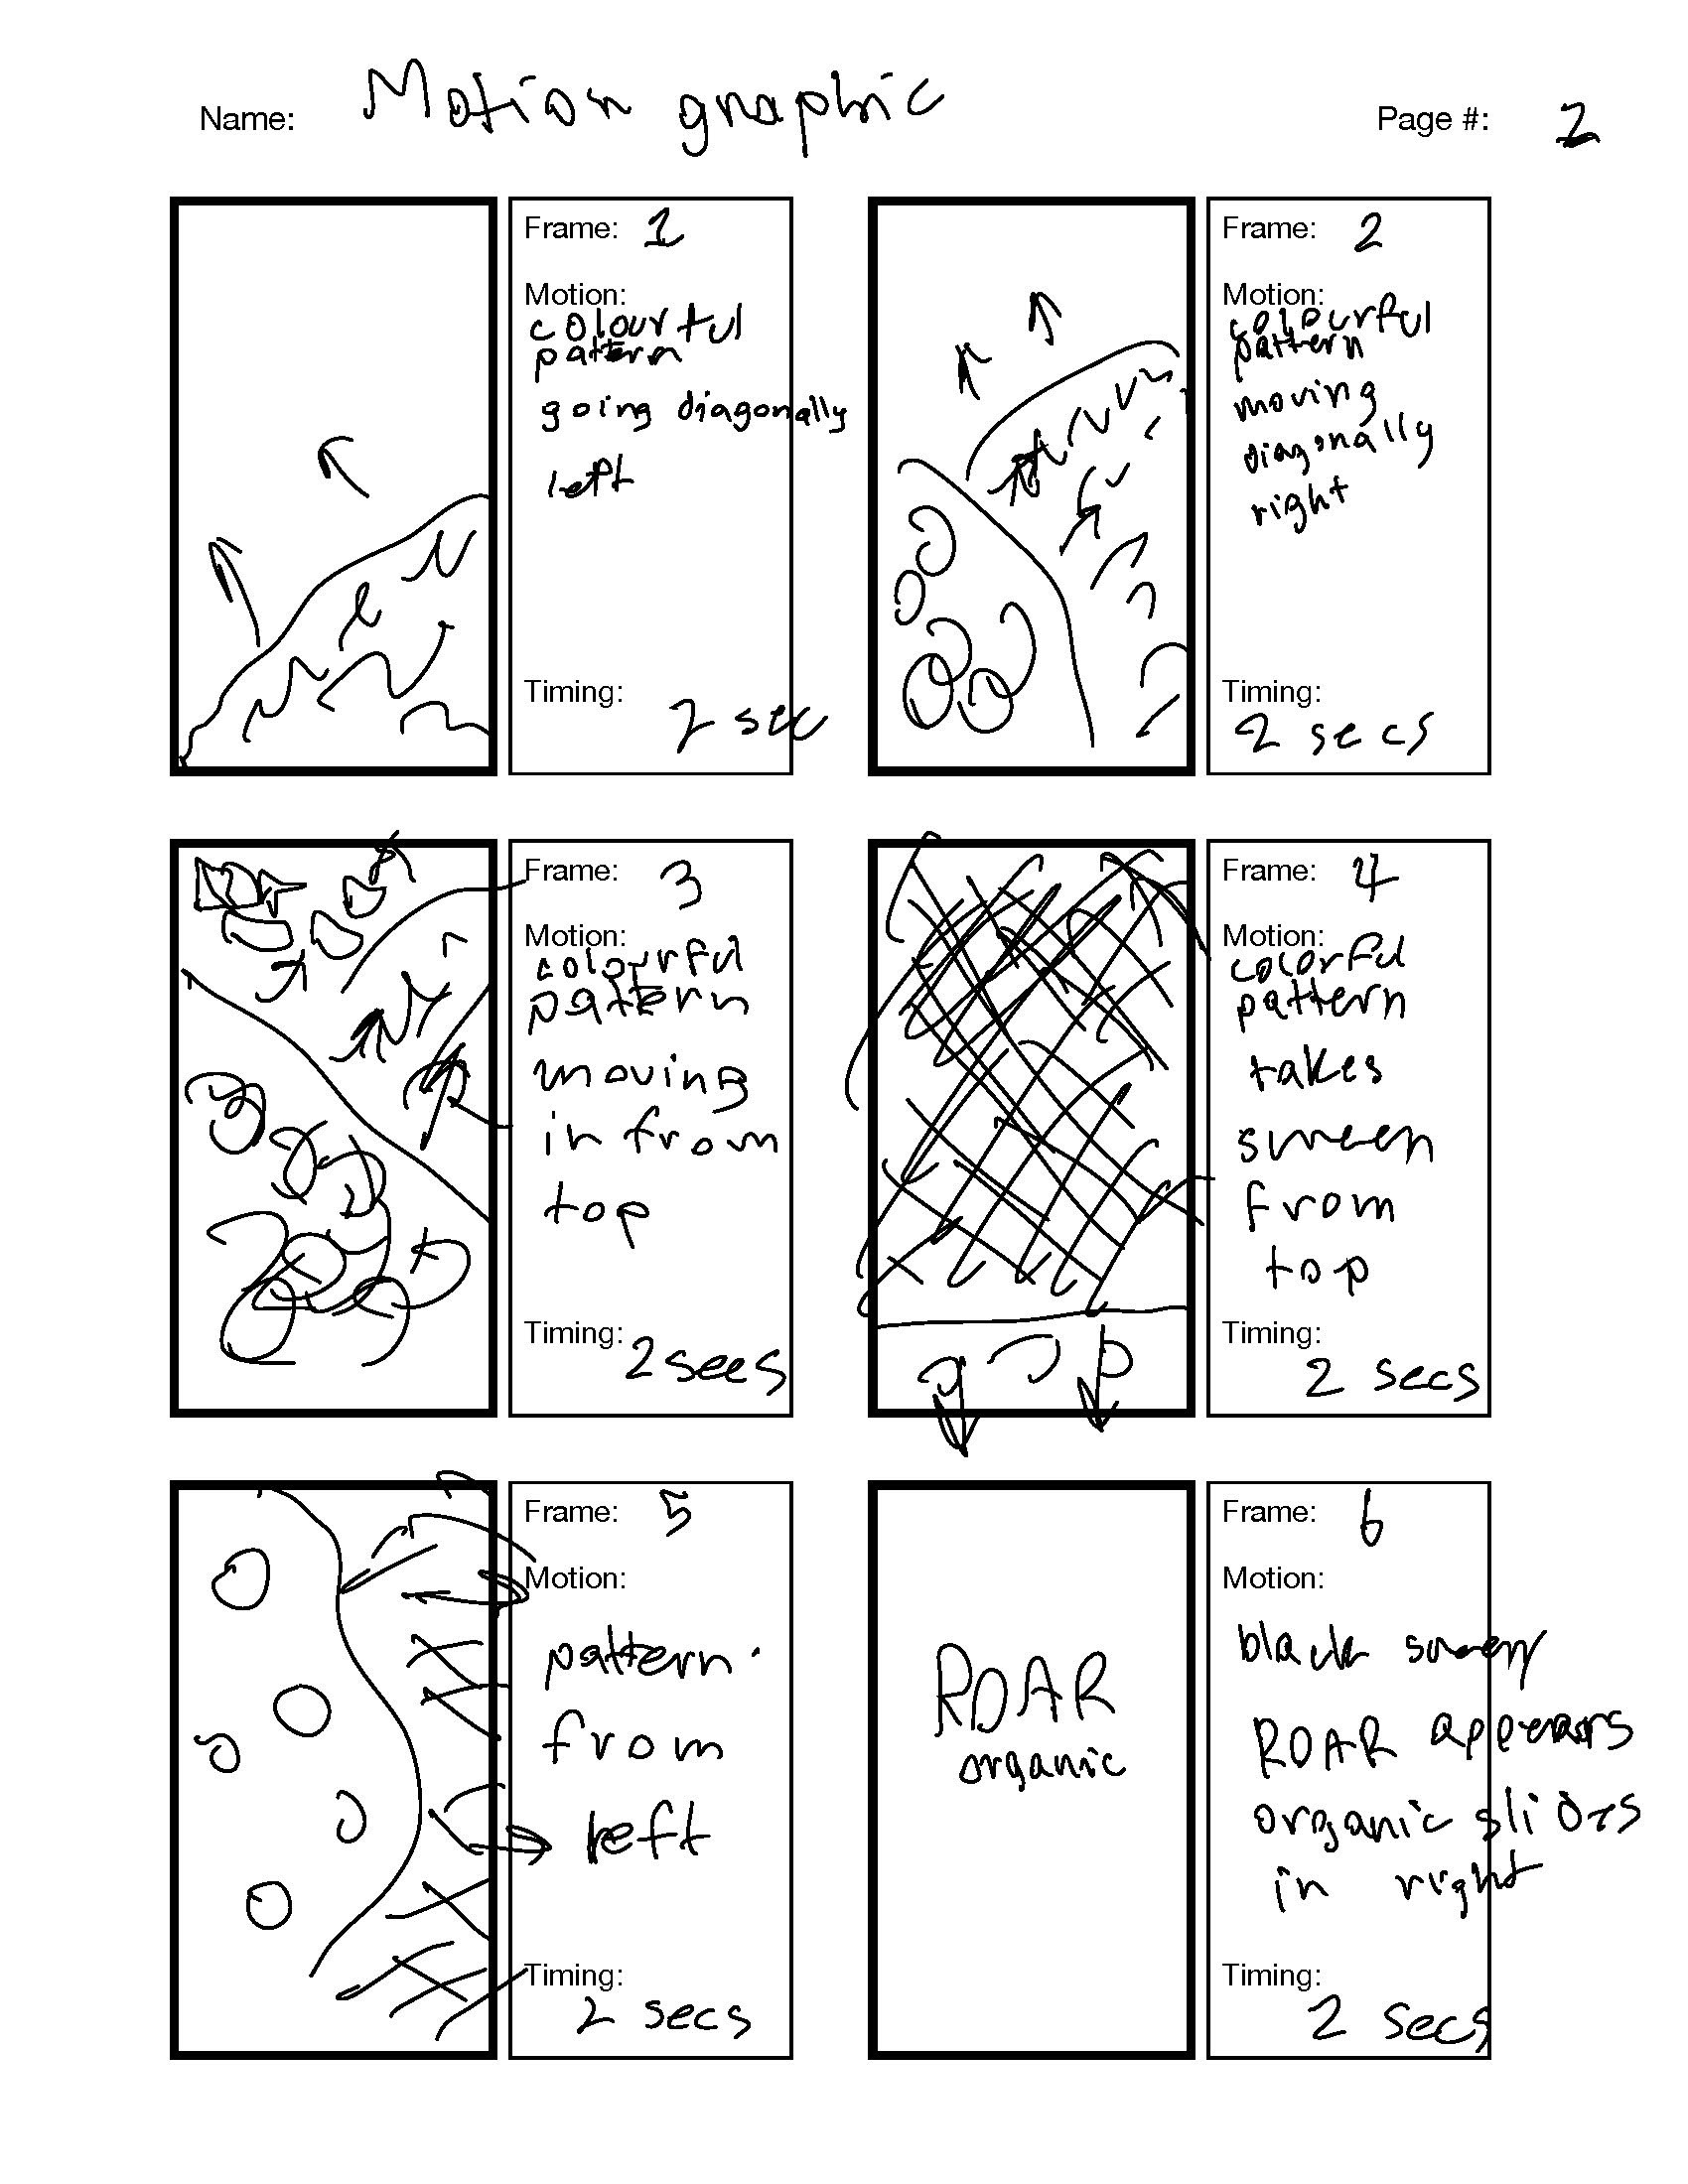 Name: Motion graphic
Page #: 2
Frame: 1
Motion:
colourful
pattern
going diagonally
left
Timing:
2 sec
Frame: 2
Motion:
colourful
pattern
moving
diagonally
right
Timing:
2 secs
Frame: 3
Motion:
colourful
pattern
moving
in from
top
Timing:
2 secs
Frame: 4
Motion:
colorful
pattern
takes
screen
from
top
Timing:
2 secs
Frame: 5
Motion:
pattern
from
left
Timing:
2 secs
ROAR
organic
Frame: 6
Motion:
black screen
ROAR appears
organic slides
in right
Timing:
2 secs